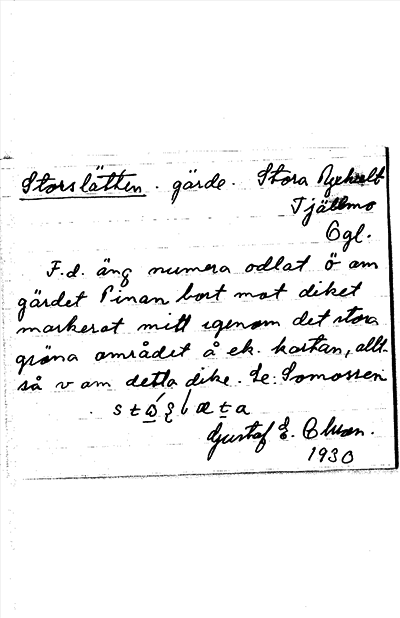 Storslätten. gärde. Stora
Tjällmo
Ögl.
F.d. äng numera odlat ö om
gärdet Pinan bort mot diket
markerat mitt igenom det stora
gröna området å ek. kartan, allt-
så v om detta dike. Se: Somossen
Gustaf E.
1930